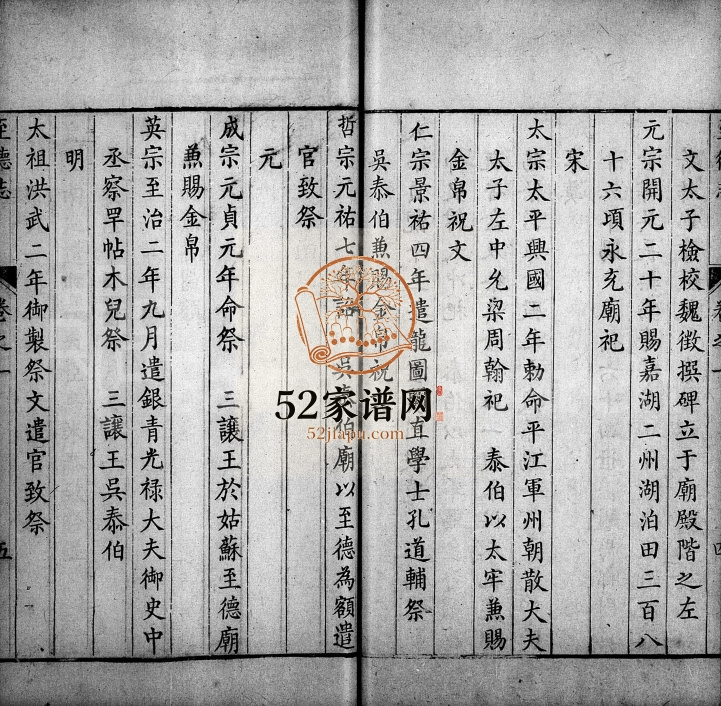 文太子檢校魏徵撰碑立于廟殿階之左
元宗開元二十年賜嘉湖二州湖泊田三百八
十六頃永充廟祀
宋
太宗太平興國二年勅命平江軍州朝散大夫
太子左中允梁周翰祀 泰伯以太牢兼賜
金帛祝文
仁宗景祐四年遣龍圖 直學士孔道輔祭
吳泰伯兼賜金帛祝
哲宗元祐七年詔 吳泰伯廟以至德為額遣
官致祭
元
成宗元貞元年命祭 三讓王於姑蘇至德廟
兼賜金帛
英宗至治二年九月遣銀青光禄大夫御史中
丞察罕帖木兒祭 三讓王吳泰伯
明
太祖洪武二年御製祭文遣官致祭
至德志 卷之一 五
52家谱网
52jiapu.com